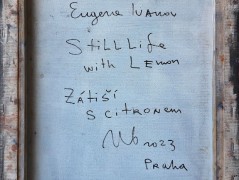 Eugene Ivanov
Still Life
with Lemon
Zátiší
s citronem
2023
Praha